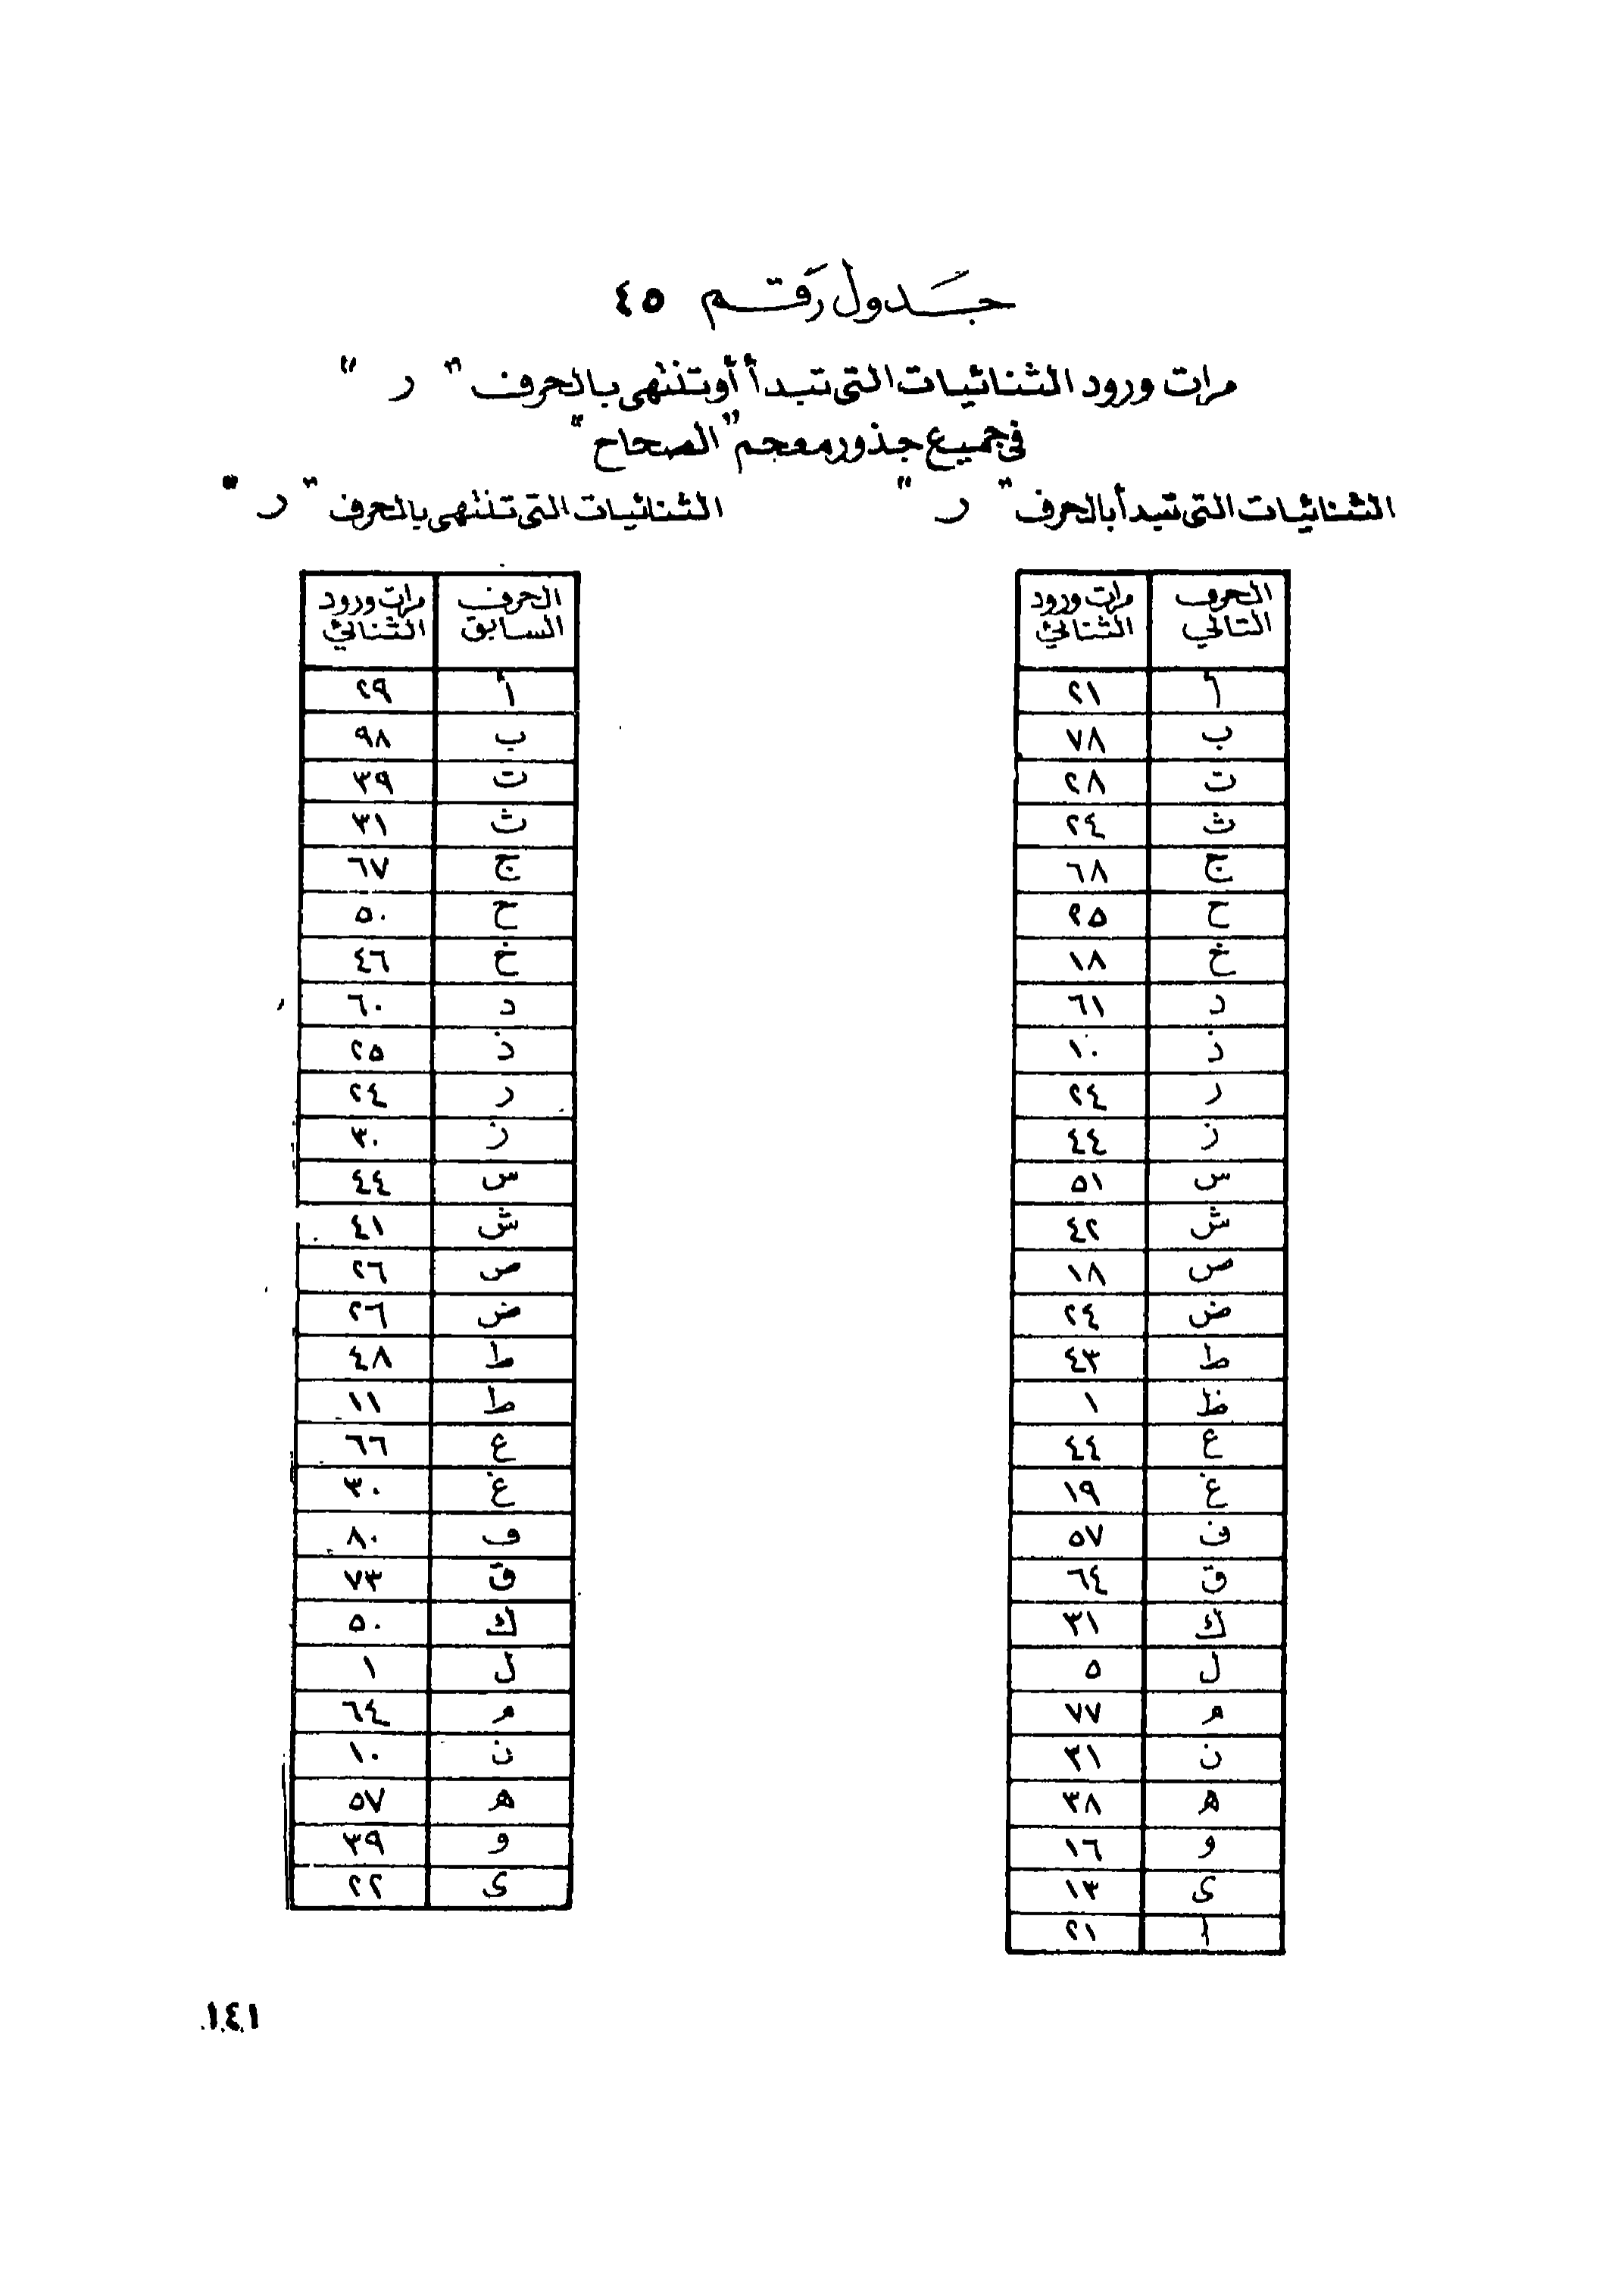 جدول رقم ٤٥
مرات ورود الثنائيات التى تبدأ أو تنتهى بالحرف " ر "
فى جميع جذور معجم "الصحاح"
الثنائيات التى تبدأ بالحرف " ر "
الحرف التالي مرات ورود الثنائي
أ ٢١
ب ٧٨
ت ٢٨
ث ٢٤
ج ٦٨
ح ٢٥
خ ١٨
د ٦١
ذ ١٠
ر ٢٤
ز ٤٤
س ٥١
ش ٤٢
ص ١٨
ض ٢٤
ط ٤٣
ظ ١
ع ٤٤
غ ١٩
ف ٥٧
ق ٦٤
ك ٣١
ل ٥
م ٧٧
ن ٣١
ه ٣٨
و ١٦
ى ١٣
ا ٢١
الثنائيات التى تنتهى بالحرف " ر "
الحرف السابق مرات ورود الثنائي
أ ٢٩
ب ٩٨
ت ٣٩
ث ٣١
ج ٦٧
ح ٥٠
خ ٤٦
د ٦٠
ذ ٢٥
ر ٢٤
ز ٣٠
س ٤٤
ش ٤١
ص ٢٦
ض ٢٦
ط ٤٨
ط ١١
ع ٦٦
غ ٣٠
ف ٨٠
ق ٧٣
ك ٥٠
ل ١
م ٦٤
ن ١٠
ه ٥٧
و ٣٩
ى ٢٢
١٤١